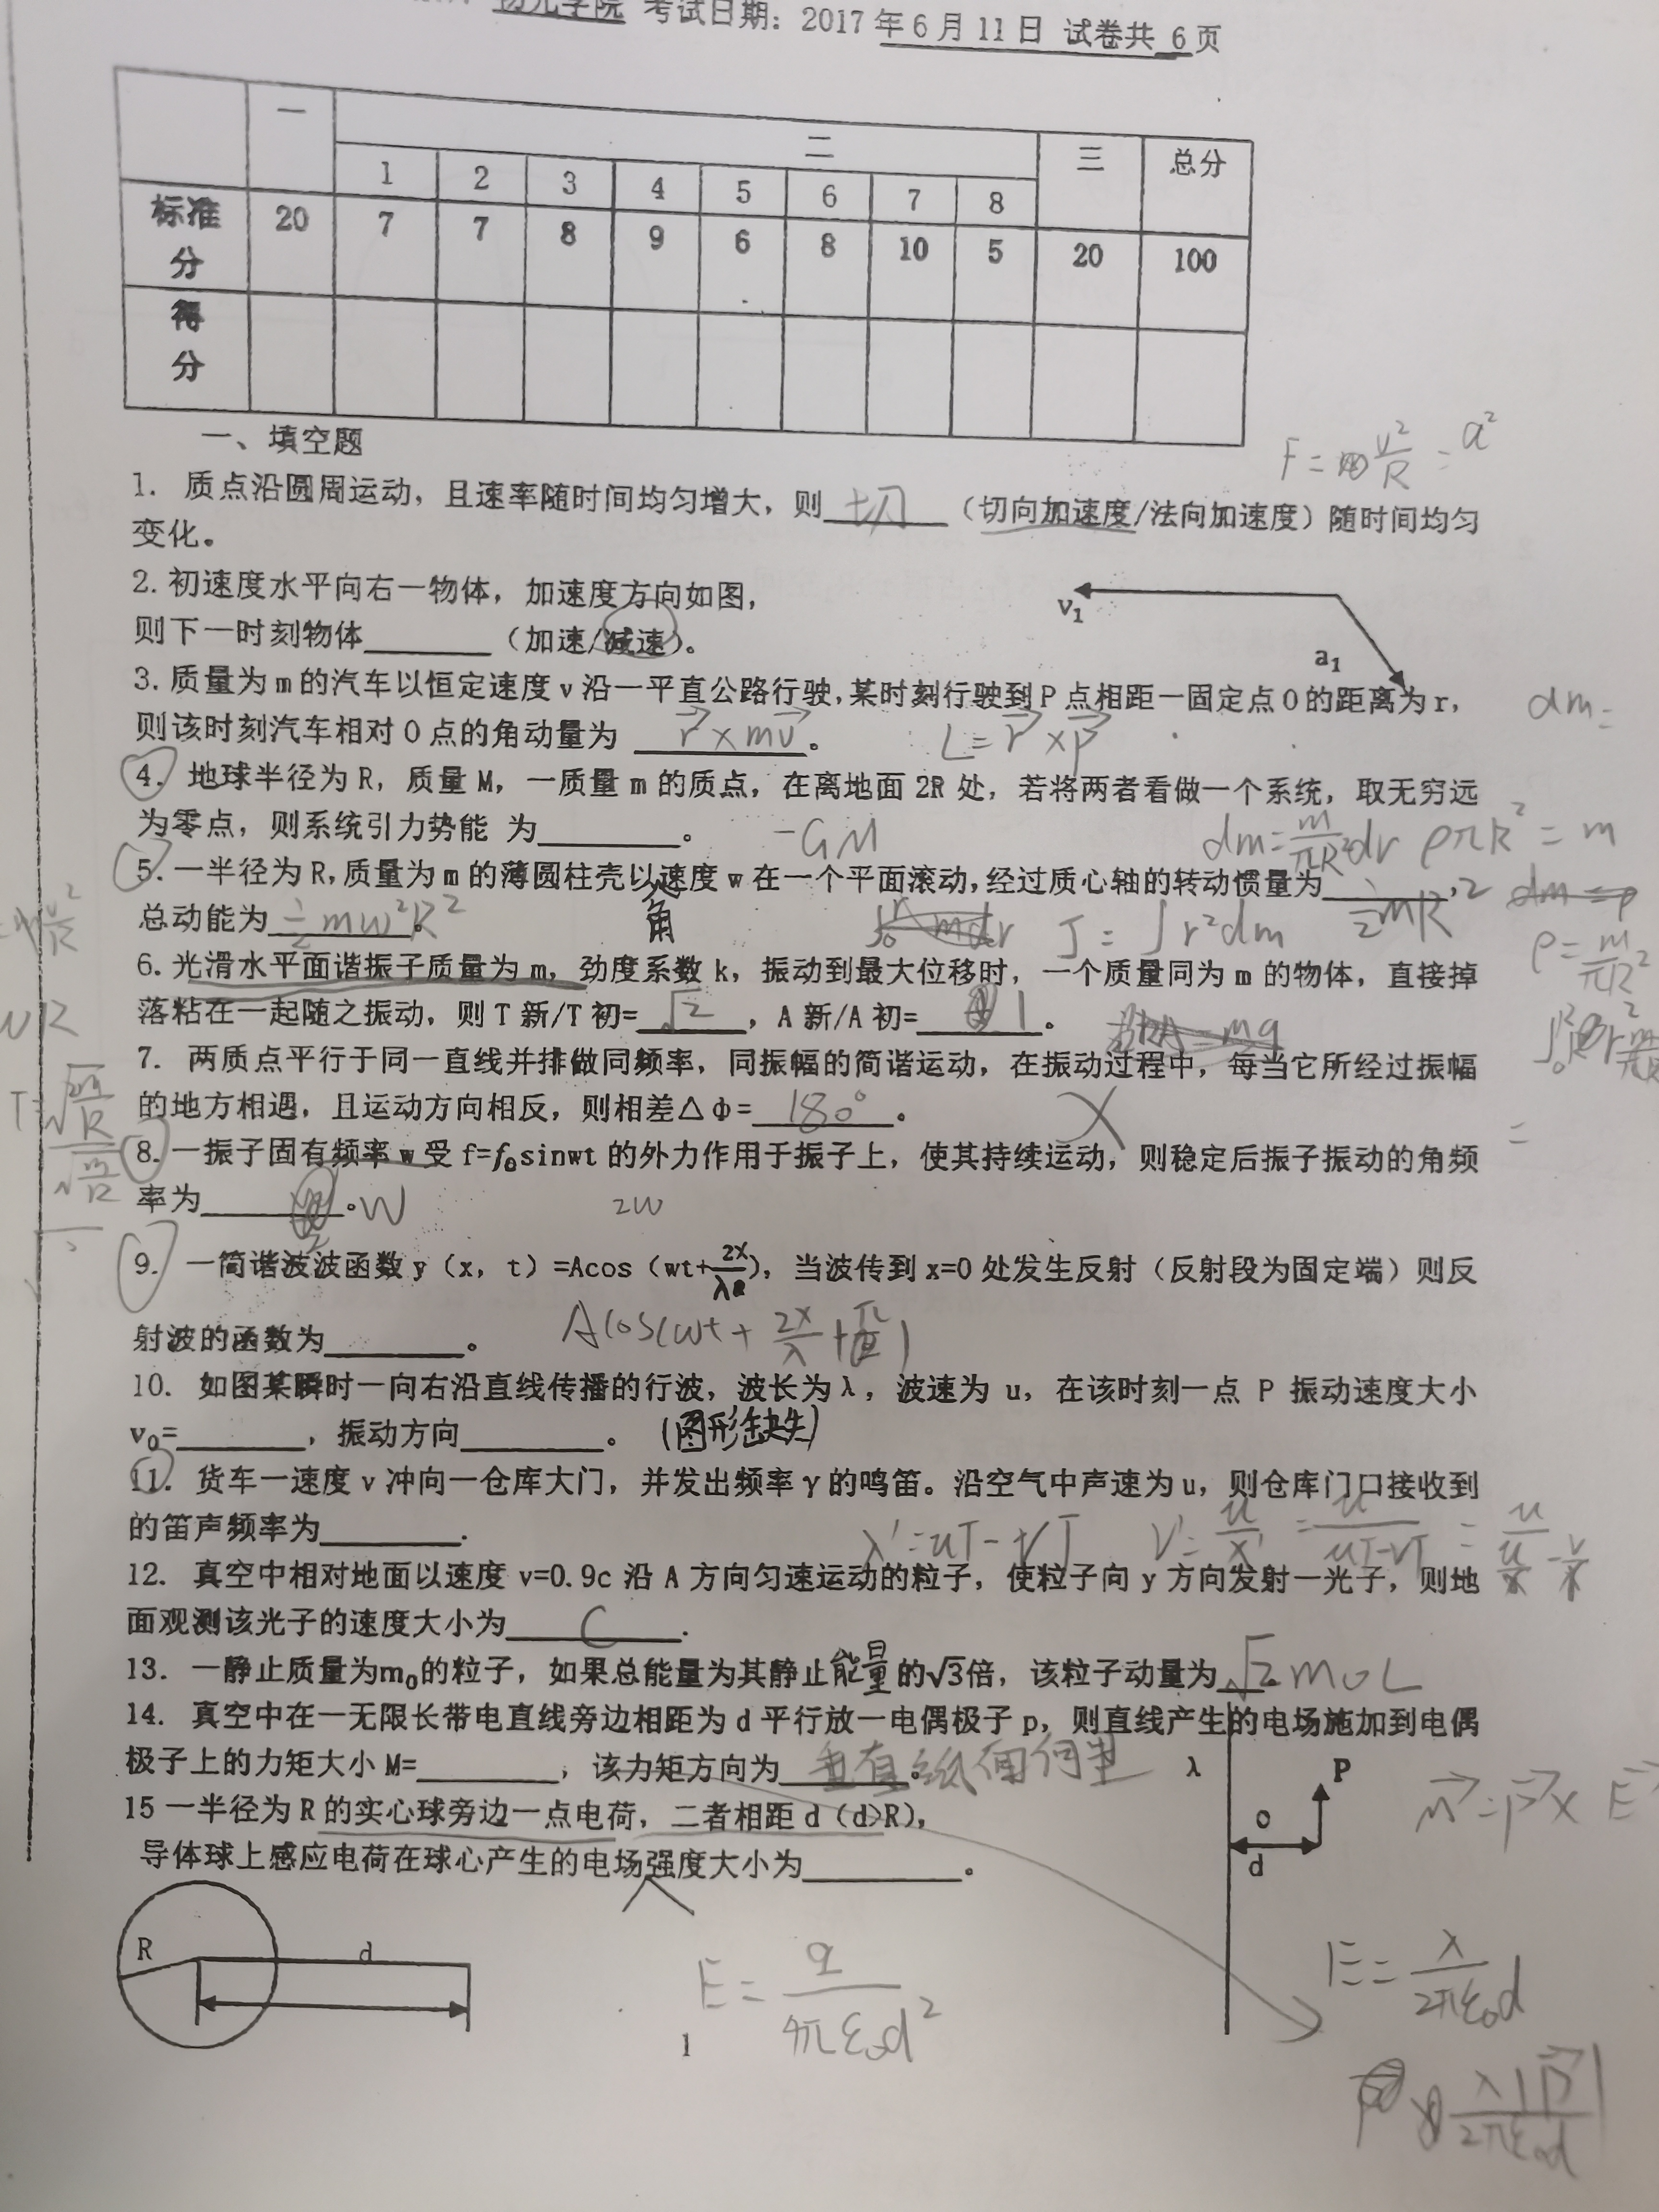 物光学院 考试日期：2017年6月11日 试卷共 6页
一 二 三 总分
1 2 3 4 5 6 7 8
标准分 20 7 7 8 9 6 8 10 5 20 100
得分
一、填空题
F=m v²/R = a²
1. 质点沿圆周运动，且速率随时间均匀增大，则 切 （切向加速度/法向加速度）随时间均匀
变化。
2. 初速度水平向右一物体，加速度方向如图，
v₁
则下一时刻物体________（加速/减速）。
a₁
3. 质量为m的汽车以恒定速度v沿一平直公路行驶，某时刻行驶到P点相距一固定点O的距离为r，
dm=
则该时刻汽车相对O点的角动量为 r×mv 。 L=r×p
4. 地球半径为R，质量M，一质量m的质点，在离地面2R处，若将两者看做一个系统，取无穷远
为零点，则系统引力势能 为________。 -GM
dm=m/πR² dr ρπR²=m
5. 一半径为R,质量为m的薄圆柱壳以速度w在一个平面滚动,经过质心轴的转动惯量为 ½mR² ,
角
总动能为 ½mw²R² 。 J=∫r²dm
ρ=m/πR²
6. 光滑水平面谐振子质量为m，劲度系数k，振动到最大位移时，一个质量同为m的物体，直接掉
落粘在一起随之振动，则T新/T初= √2 ，A新/A初= 1 。
7. 两质点平行于同一直线并排做同频率，同振幅的简谐运动，在振动过程中，每当它所经过振幅
的地方相遇，且运动方向相反，则相差△φ= 180° 。
8. 一振子固有频率w受f=f₀sinwt的外力作用于振子上，使其持续运动，则稳定后振子振动的角频
率为________。W 2W
9. 一简谐波波函数y（x，t）=Acos（wt+2x/λ），当波传到x=0处发生反射（反射段为固定端）则反
射波的函数为________。 Acos(wt+2x/λ+
10. 如图某瞬时一向右沿直线传播的行波，波长为λ，波速为u，在该时刻一点P振动速度大小
v₀=________，振动方向________。（图形缺失）
11. 货车一速度v冲向一仓库大门，并发出频率γ的鸣笛。沿空气中声速为u，则仓库门口接收到
的笛声频率为________. λ'=uT-vT ν'=u/λ'=u/(uT-vT)=
12. 真空中相对地面以速度v=0.9c沿A方向匀速运动的粒子，使粒子向y方向发射一光子，则地
面观测该光子的速度大小为 C .
13. 一静止质量为m₀的粒子，如果总能量为其静止能量的√3倍，该粒子动量为√2 m0C
14. 真空中在一无限长带电直线旁边相距为d平行放一电偶极子p，则直线产生的电场施加到电偶
极子上的力矩大小M=________，该力矩方向为 垂直纸面向里 。
λ P
M=P×E
15 一半径为R的实心球旁边一点电荷，二者相距d（d>R），
O
d
导体球上感应电荷在球心产生的电场强度大小为________。
R d
E=q/4πε₀d²
E=λ/2πε₀d
λ|P|/2πε₀d
1